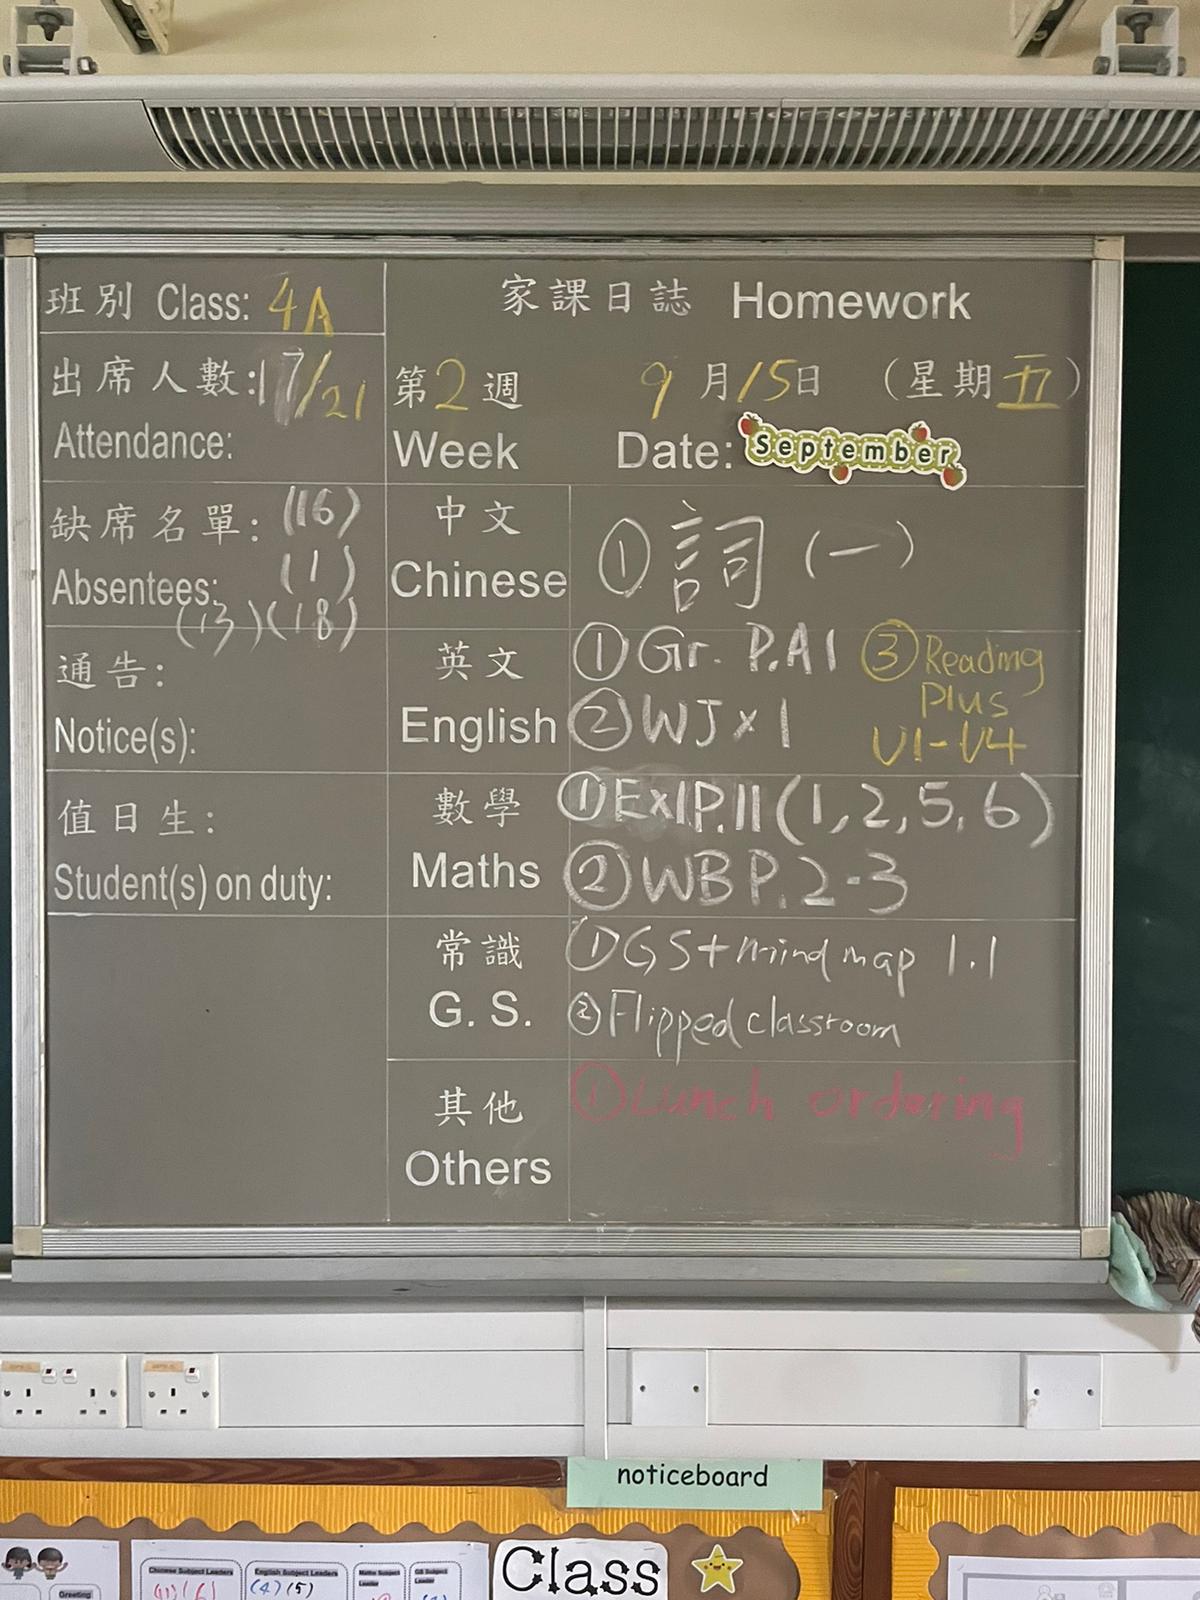 班別 Class: 4A
出席人數: 17/21
Attendance:
缺席名單: (16)
Absentees: (1)
(13)(18)
通告:
Notice(s):
值日生:
Student(s) on duty:
家課日誌 Homework
第2週 9月15日 (星期五)
Week Date: September
中文
Chinese
① 詞 (一)
英文
English
① Gr. P.A1
② WJ x 1
③ Reading
Plus
U1-U4
數學
Maths
① Ex1P.11 (1,2,5,6)
② WB P.2-3
常識
G. S.
① GS + mind map 1.1
② Flipped classroom
其他
Others
① Lunch ordering
noticeboard
Chinese Subject Leaders
English Subject Leaders
(4)(5)
Maths Subject
Leader
GS Subject
Leader
Greeting
Class